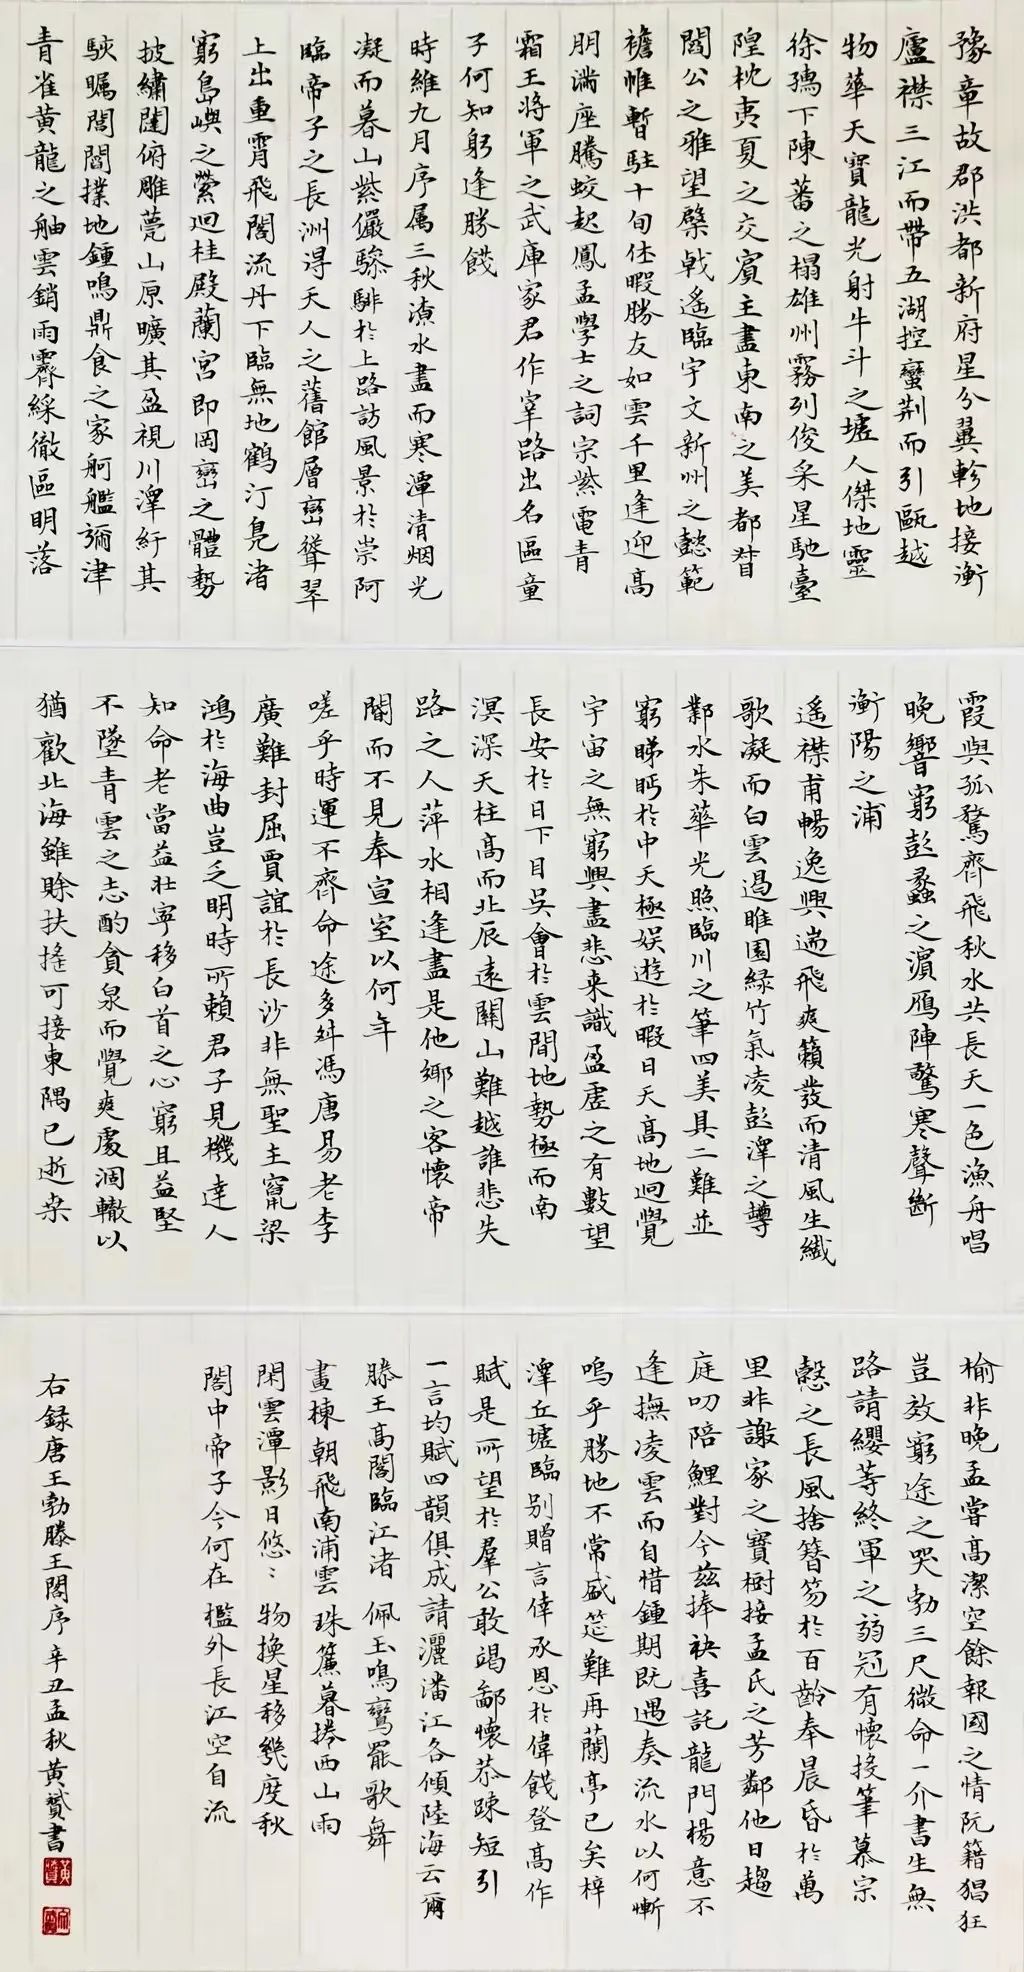 豫章故郡洪都新府星分翼軫地接衡
廬襟三江而帶五湖控蠻荆而引甌越
物華天寳龍光射牛斗之墟人傑地靈
徐孺下陳蕃之榻雄州霧列俊采星馳臺
隍枕夷夏之交賓主盡東南之美都督
閻公之雅望棨戟遙臨宇文新州之懿範
襜帷暫駐十旬休暇勝友如雲千里逢迎高
朋滿座騰蛟起鳳孟學士之詞宗紫電青
霜王將軍之武庫家君作宰路出名區童
子何知躬逢勝餞
時維九月序属三秋潦水盡而寒潭清烟光
凝而暮山紫儼驂騑於上路訪風景於崇阿
臨帝子之長洲得天人之舊館層巒聳翠
上出重霄飛閣流丹下臨無地鶴汀鳧渚
窮島嶼之縈迴桂殿蘭宮即岡巒之體勢
披繡闥俯雕甍山原曠其盈視川澤紆其
駭矚閭閻撲地鍾鳴鼎食之家舸艦彌津
青雀黄龍之舳雲銷雨霽綵徹區明落
霞與孤騖齊飛秋水共長天一色漁舟唱
晚響窮彭蠡之濵鴈陣驚寒聲斷
衡陽之浦
遙襟甫暢逸興遄飛爽籟發而清風生纖
歌凝而白雲遏睢園緑竹氣凌彭澤之罇
鄴水朱華光照臨川之筆四美具二難並
窮睇眄於中天極娱遊於暇日天高地迥覺
宇宙之無窮興盡悲来識盈虛之有數望
長安於日下目吳會於雲間地勢極而南
溟深天柱高而北辰遠關山難越誰悲失
路之人萍水相逢盡是他鄉之客懷帝
閽而不見奉宣室以何年
嗟乎時運不齊命途多舛馮唐易老李
廣難封屈賈誼於長沙非無聖主竄梁
鴻於海曲豈乏明時所賴君子見機達人
知命老當益壯寧移白首之心窮且益堅
不墜青雲之志酌貪泉而覺爽處涸轍以
猶歡北海雖賒扶搖可接東隅已逝桑
榆非晚孟嘗高潔空餘報國之情阮籍猖狂
豈效窮途之哭勃三尺微命一介書生無
路請纓等終軍之弱冠有懷投筆慕宗
愨之長風捨簪笏於百齡奉晨昏於萬
里非謝家之寳樹接孟氏之芳鄰他日趨
庭叨陪鯉對今兹捧袂喜託龍門楊意不
逢撫凌雲而自惜鍾期既遇奏流水以何慚
嗚乎勝地不常盛筵難再蘭亭已矣梓
澤丘墟臨别贈言倖承恩於偉餞登高作
賦是所望於羣公敢竭鄙懷恭踈短引
一言均賦四韻俱成請灑潘江各傾陸海云爾
滕王高閣臨江渚 佩玉鳴鸞罷歌舞
畫棟朝飛南浦雲 珠簾暮捲西山雨
閑雲潭影日悠〻 物換星移幾度秋
閣中帝子今何在 檻外長江空自流
右録唐王勃滕王閣序 辛丑孟秋黄贇書